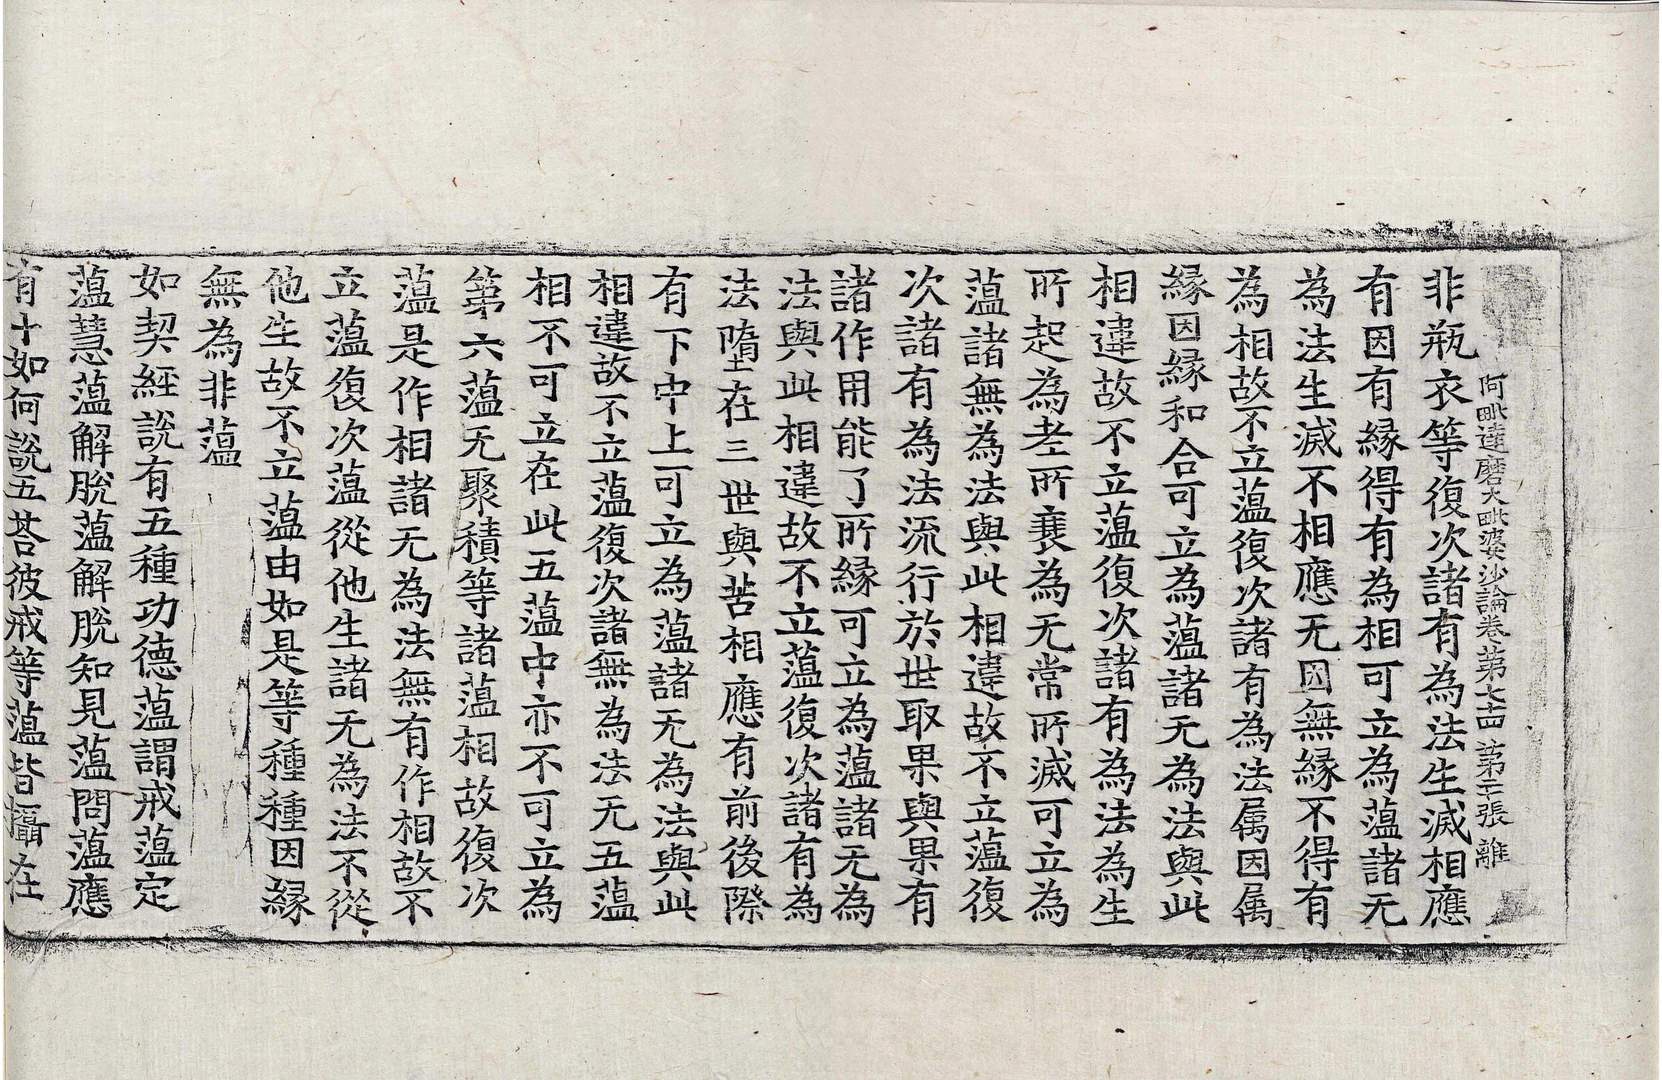 阿毗達磨大毗婆沙論卷第七十四 第十三張 離
非瓶衣等復次諸有為法生滅相應
有因有緣得有為相可立為蘊諸无
為法生滅不相應无因無緣不得有
為相故不立蘊復次諸有為法属因属
緣因緣和合可立為蘊諸无為法與此
相違故不立蘊復次諸有為法為生
所起為老所衰為无常所滅可立為
蘊諸無為法與此相違故不立蘊復
次諸有為法流行於世取果與果有
諸作用能了所緣可立為蘊諸无為
法與此相違故不立蘊復次諸有為
法墮在三世與苦相應有前後際
有下中上可立為蘊諸无為法與此
相違故不立蘊復次諸無為法无五蘊
相不可立在此五蘊中亦不可立為
第六蘊无聚積等諸蘊相故復次
蘊是作相諸无為法無有作相故不
立蘊復次蘊從他生諸无為法不從
他生故不立蘊由如是等種種因緣
無為非蘊
如契經說有五種功德蘊謂戒蘊定
蘊慧蘊解脫蘊解脫知見蘊問蘊應
有十如何說五荅彼戒等蘊皆攝在